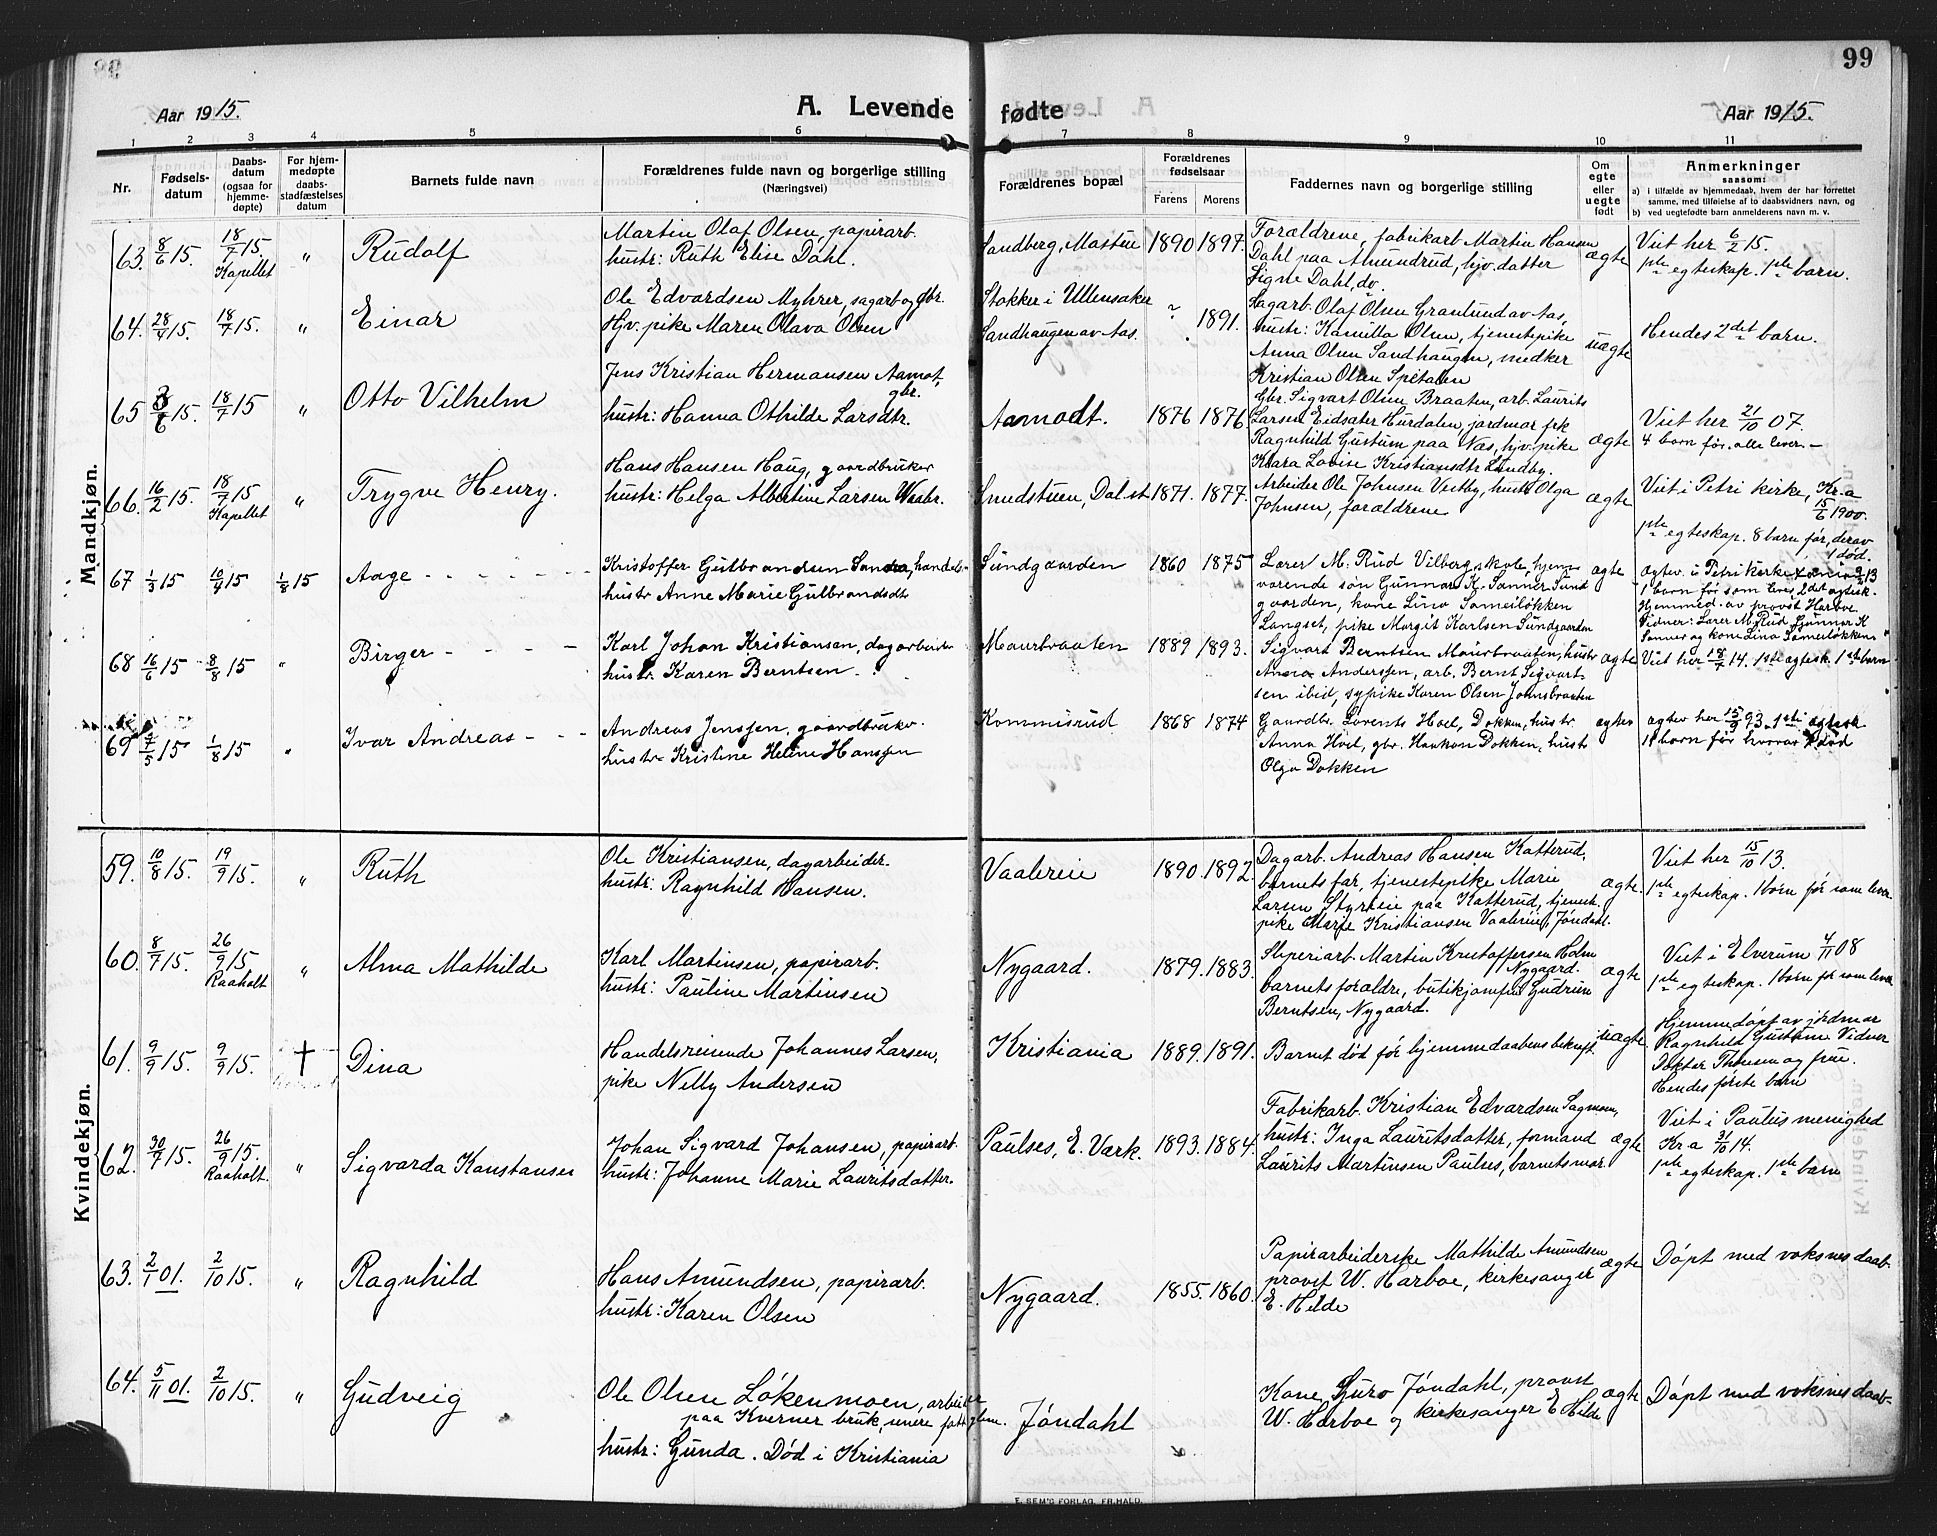 99
Aar 1915.
A. Levende fødte
Aar 1915.
1 2 3 4 5 6 7 8 9 10 11
Nr.
Fødsels-
datum
Daabs-
datum
(ogsaa for
hjemme-
døpte)
For hjem-
medøpte
daabs-
stadfæstelses
datum
Barnets fulde navn
Forældrenes fulde navn og borgerlige stilling
(Næringsvei)
Forældrenes bopæl
Forældrenes
fødselsaar
Farens Morens
Faddernes navn og borgerlige stilling
Om
egte
eller
uegte
født
Anmerkninger
saasom:
a) i tilfælde av hjemmedaab, hvem der har forrettet
samme, med tilføielse af to daabsvidners navn, og
b) ved uegtefødte barn anmelderens navn m. v.
Mandkjøn.
63. 8/6 15. 18/7 15. Kapellet " Rudolf
Martin Olaf Olsen, papirarb.
hustr: Ruth Elise Dahl.
Sandberg, Mastue 1890 1897.
Forældrene, fabrikarb Martin Hansen
Dahl paa Amundrud, hjv. datter
Signe Dahl, do.
ægte
Viet her 6/2 15.
1ste egteskap. 1ste barn.
64. 28/4 15. 18/7 15. " Einar
Ole Edvardsen Myhrer, sagarb og gbr.
Hjv. pike Maren Olava Olsen
Stokker i Ullensaker
Sandhaugen av Aas.
? 1891.
Sagarb. Olaf Olsen Granlund av Aas,
hustr: Kamilla Olsen, tjenestepike
Anna Olsen Sandhaugen, medker
Kristian Olsen Spetalen
uægte
Hendes 2det barn.
65 8/6 15. 18/7 15 " Otto Vilhelm
Jens Kristian Hermansen Aamot,
gbr.
hustr: Hanna Othilde Larsdtr.
Aamodt. 1876 1876
Gbr. Sigvart Olsen Braaten, arb. Laurits
Larsen Eidsater Hurdalen, jordmor frk
Ragnhild Gustum paa Næs, hjv. pike
Klara Lovise Kristiansdtr Lundby.
ægte
Viet her 21/10 07.
4 barn før. alle lever. –
66. 16/2 15. 18/7 15 Kapellet " Trygve Henry.
Hans Hansen Haug, gaardbruker
hustr: Helga Albertine Larsen
Smedstuen, Dal st. 1871. 1877.
Arbeider Ole Johnsen Vestby, hustr Olga
Johnsen, forældrene
ægte
Viet i Petri kirke, Kr.a
15/6 1900.
1ste egteskap. 8 barn før, derav
1 død.
67 1/3 15 10/4 15 1/8 15 Aage - - - - - -
Kristoffer Gulbrandsen Sanner, handels
hustr Anne Marie Gulbrandsdtr
Sundgaarden 1860 1875
Lærer M. Rud Vilberg skole, hjem-
værende søn Gunnar K. Sanner Sund
gaarden, kone Lina Sameiløkken
Langset, pike Margit Karlsen Sundgaarden
ægte
1 barn før som lever, 2det egtesk.
Hjemmed. av provst Harboe
Vidner: Lærer M. Rud Gunnar K
Sanner og kone Lina Sameiløkken
68 16/6 15 8/8 15 " Birger - - - -
Karl Johan Kristiansen, dagarbeider
hustr. Karen Berntsen
Maurbraaten 1889 1893.
Sigvart Berntsen Maurbraaten, hustr
Anna Anderssen, arb. Bernt Sigvart-
sen ibid, sypike Karen Olsen Johnsbraaten
ægte
Viet her 18/7 14. 1ste egtesk. 1ste barn
69 7/5 15 1/8 15 " Ivar Andreas - - -
Andreas Jenssen, gaardbruker.
hustr Kristine Heline Hanssen
Kommisrud 1868 1874
Gaardbr. Lorents Hoel, Dokken, hustr
Anna Hoel, gbr. Haakon Dokken, hustr
Olga Dokken
ægtev
ægtev her 15/9 93. 1ste egtesk
barn før hvorav død
Kvindekjøn.
59. 10/8 15. 19/9 15. " Ruth
Ole Kristiansen, dagarbeider.
hustr: Ragnhild Hansen.
Vaalereie 1890. 1892.
Dagarb. Andreas Hansen Katterud,
barnets far, tjenestepike Marie
Larsen Styrieie paa Katterud, tjenest.
pike Marie Kristiansen Vaalereie, Jøndahl.
ægte.
Viet her 15/10 13.
1ste egteskap. 1 barn før som lever.
60. 8/7 15. 26/9 15. Raaholt " Alma Mathilde
Karl Martinsen, papirarb.
hustr: Pauline Martinsen
Nygaard. 1879. 1883.
Sliperiarb. Martin Kristoffersen Holm
Nygaard.
barnets forældre, butikjomfru Gudrun
Berntsen, Nygaard.
ægte
Viet i Elverum 4/11 08
1ste egteskap. 1 barn før som lever
61. 9/9 15. 9/9 15. † Dina
Handelsreisende Johannes Larsen,
pike Nelly Andersen
Kristiania 1889. 1891.
Barnet død før hjemmedaabens bekræft.
uægte
Hjemmedøpt av jordmor
Ragnhild Gustum Vidner
Doktor Thoresen og frue.
Hendes første barn
62. 30/7 15. 26/9 15. Raaholt. " Sigvarda Konstanse
Johan Sigvard Johansen, papirarb.
hustr: Johanne Marie Lauritsdatter.
Paulses, E. Værk. 1893. 1884.
Fabrikarb. Kristian Edvardsen Sagmoen,
hustr: Inga Lauritsdatter, formand
Laurits Martinsen Paulses, barnets mor.
ægte
Viet i Paulus menighed
Kr.a 31/10 14.
1ste egteskap. 1ste barn
63. 2/1 01. 2/10 15. " Ragnhild
Hans Amundsen, papirarb.
hustr: Karen Olsen
Nygaard. 1855. 1860.
Papirarbeiderske Mathilde Amundsen
provst W. Harboe, kirkesanger
E. Hilde
ægte
Døpt med voksnes daab.
64. 5/11 01. 2/10 15. " Gudveig
Ole Olsen Løkenmoen, arbeider
paa Kverner bruk,
hustr: Gunda. Død i Kristiania
Jøndahl
Kone Guro Jøndahl, provst
W. Harboe og kirkesanger E Hilde
ægte
Døpt med voksnes daab-
E. SEM'S FORLAG, FR.HALD.